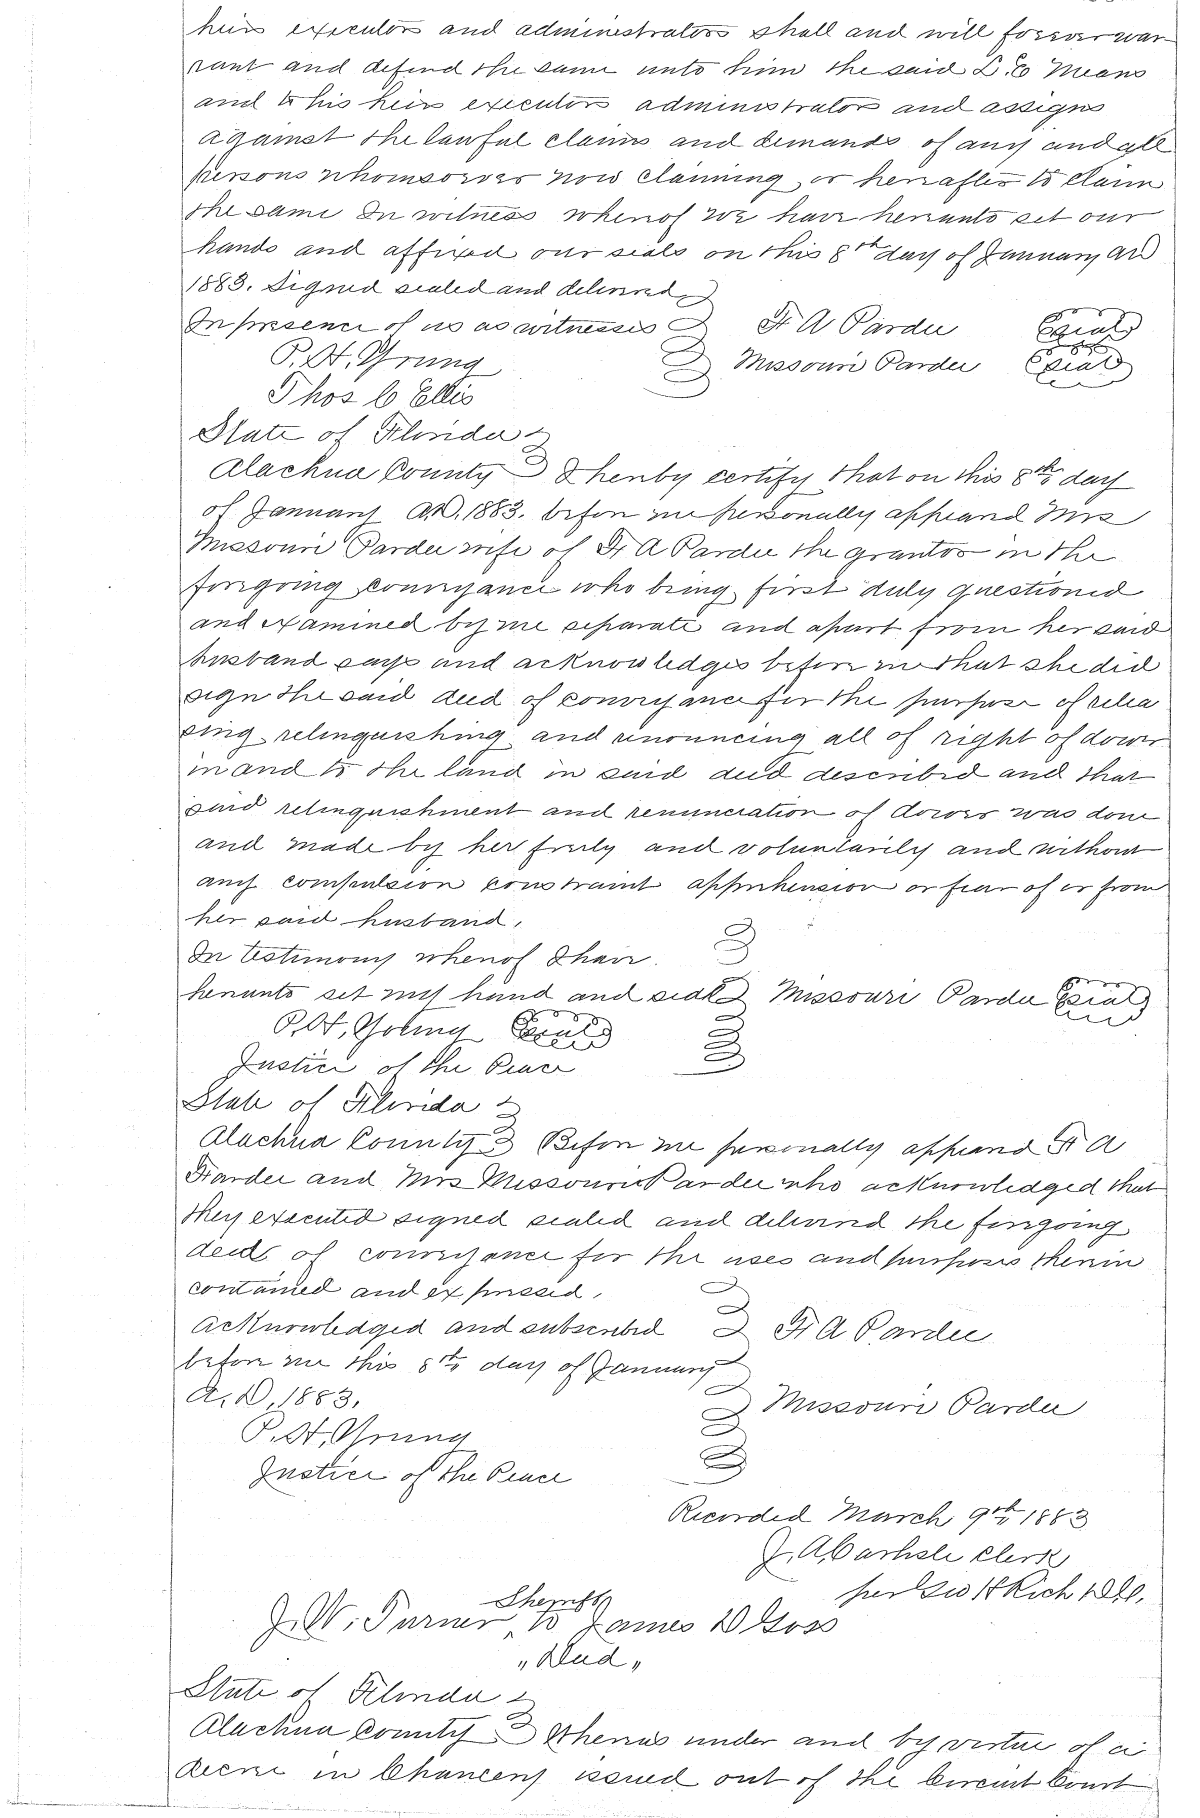 heirs executors and administrators shall and will forever war
rant and defend the same unto him the said L. C Means
and to his heirs executors administrators and assigns
against the lawful claims and demands of any and all
persons whomsoever now claiming or hereafter to claim
the same In witness whereof we have hereunto set our
hands and affixed our seals on this 8th day of January AD
1883. Signed sealed and delivered
In presence of us as witnesses F A Pardee Seal
P. H. Young Missouri Pardee Seal
Thos C Ellis
State of Florida
Alachua County I hereby certify that on this 8th day
of January A.D. 1883. before me personally appeared Mrs
Missouri Pardee wife of F A Pardee the grantor in the
foregoing conveyance who being first duly questioned
and examined by me separate and apart from her said
husband says and acknowledges before me that she did
sign the said deed of conveyance for the purpose of relea
sing relinquishing and renouncing all of right of dower
in and to the land in said deed described and that
said relinquishment and renunciation of dower was done
and made by her freely and voluntarily and without
any compulsion constraint apprehension or fear of or from
her said husband.
In testimony whereof I have
hereunto set my hand and seal Missouri Pardee Seal
P. H. Young Seal
Justice of the Peace
State of Florida
Alachua County Before me personally appeared F A
Pardee and Mrs Missouri Pardee who acknowledged that
they executed signed sealed and delivered the foregoing
deed of conveyance for the uses and purposes therein
contained and expressed.
Acknowledged and subscribed F A Pardee
before me this 8th day of January
A. D. 1883. Missouri Pardee
P. H. Young
Justice of the Peace
Recorded March 9th 1883
J. A. Carlisle Clerk
per Geo H Rich D.C.
Sheriff
J. W. Turner to James D Goss
"Deed"
State of Florida
Alachua County Whereas under and by virtue of a
decree in Chancery issued out of the Circuit Court